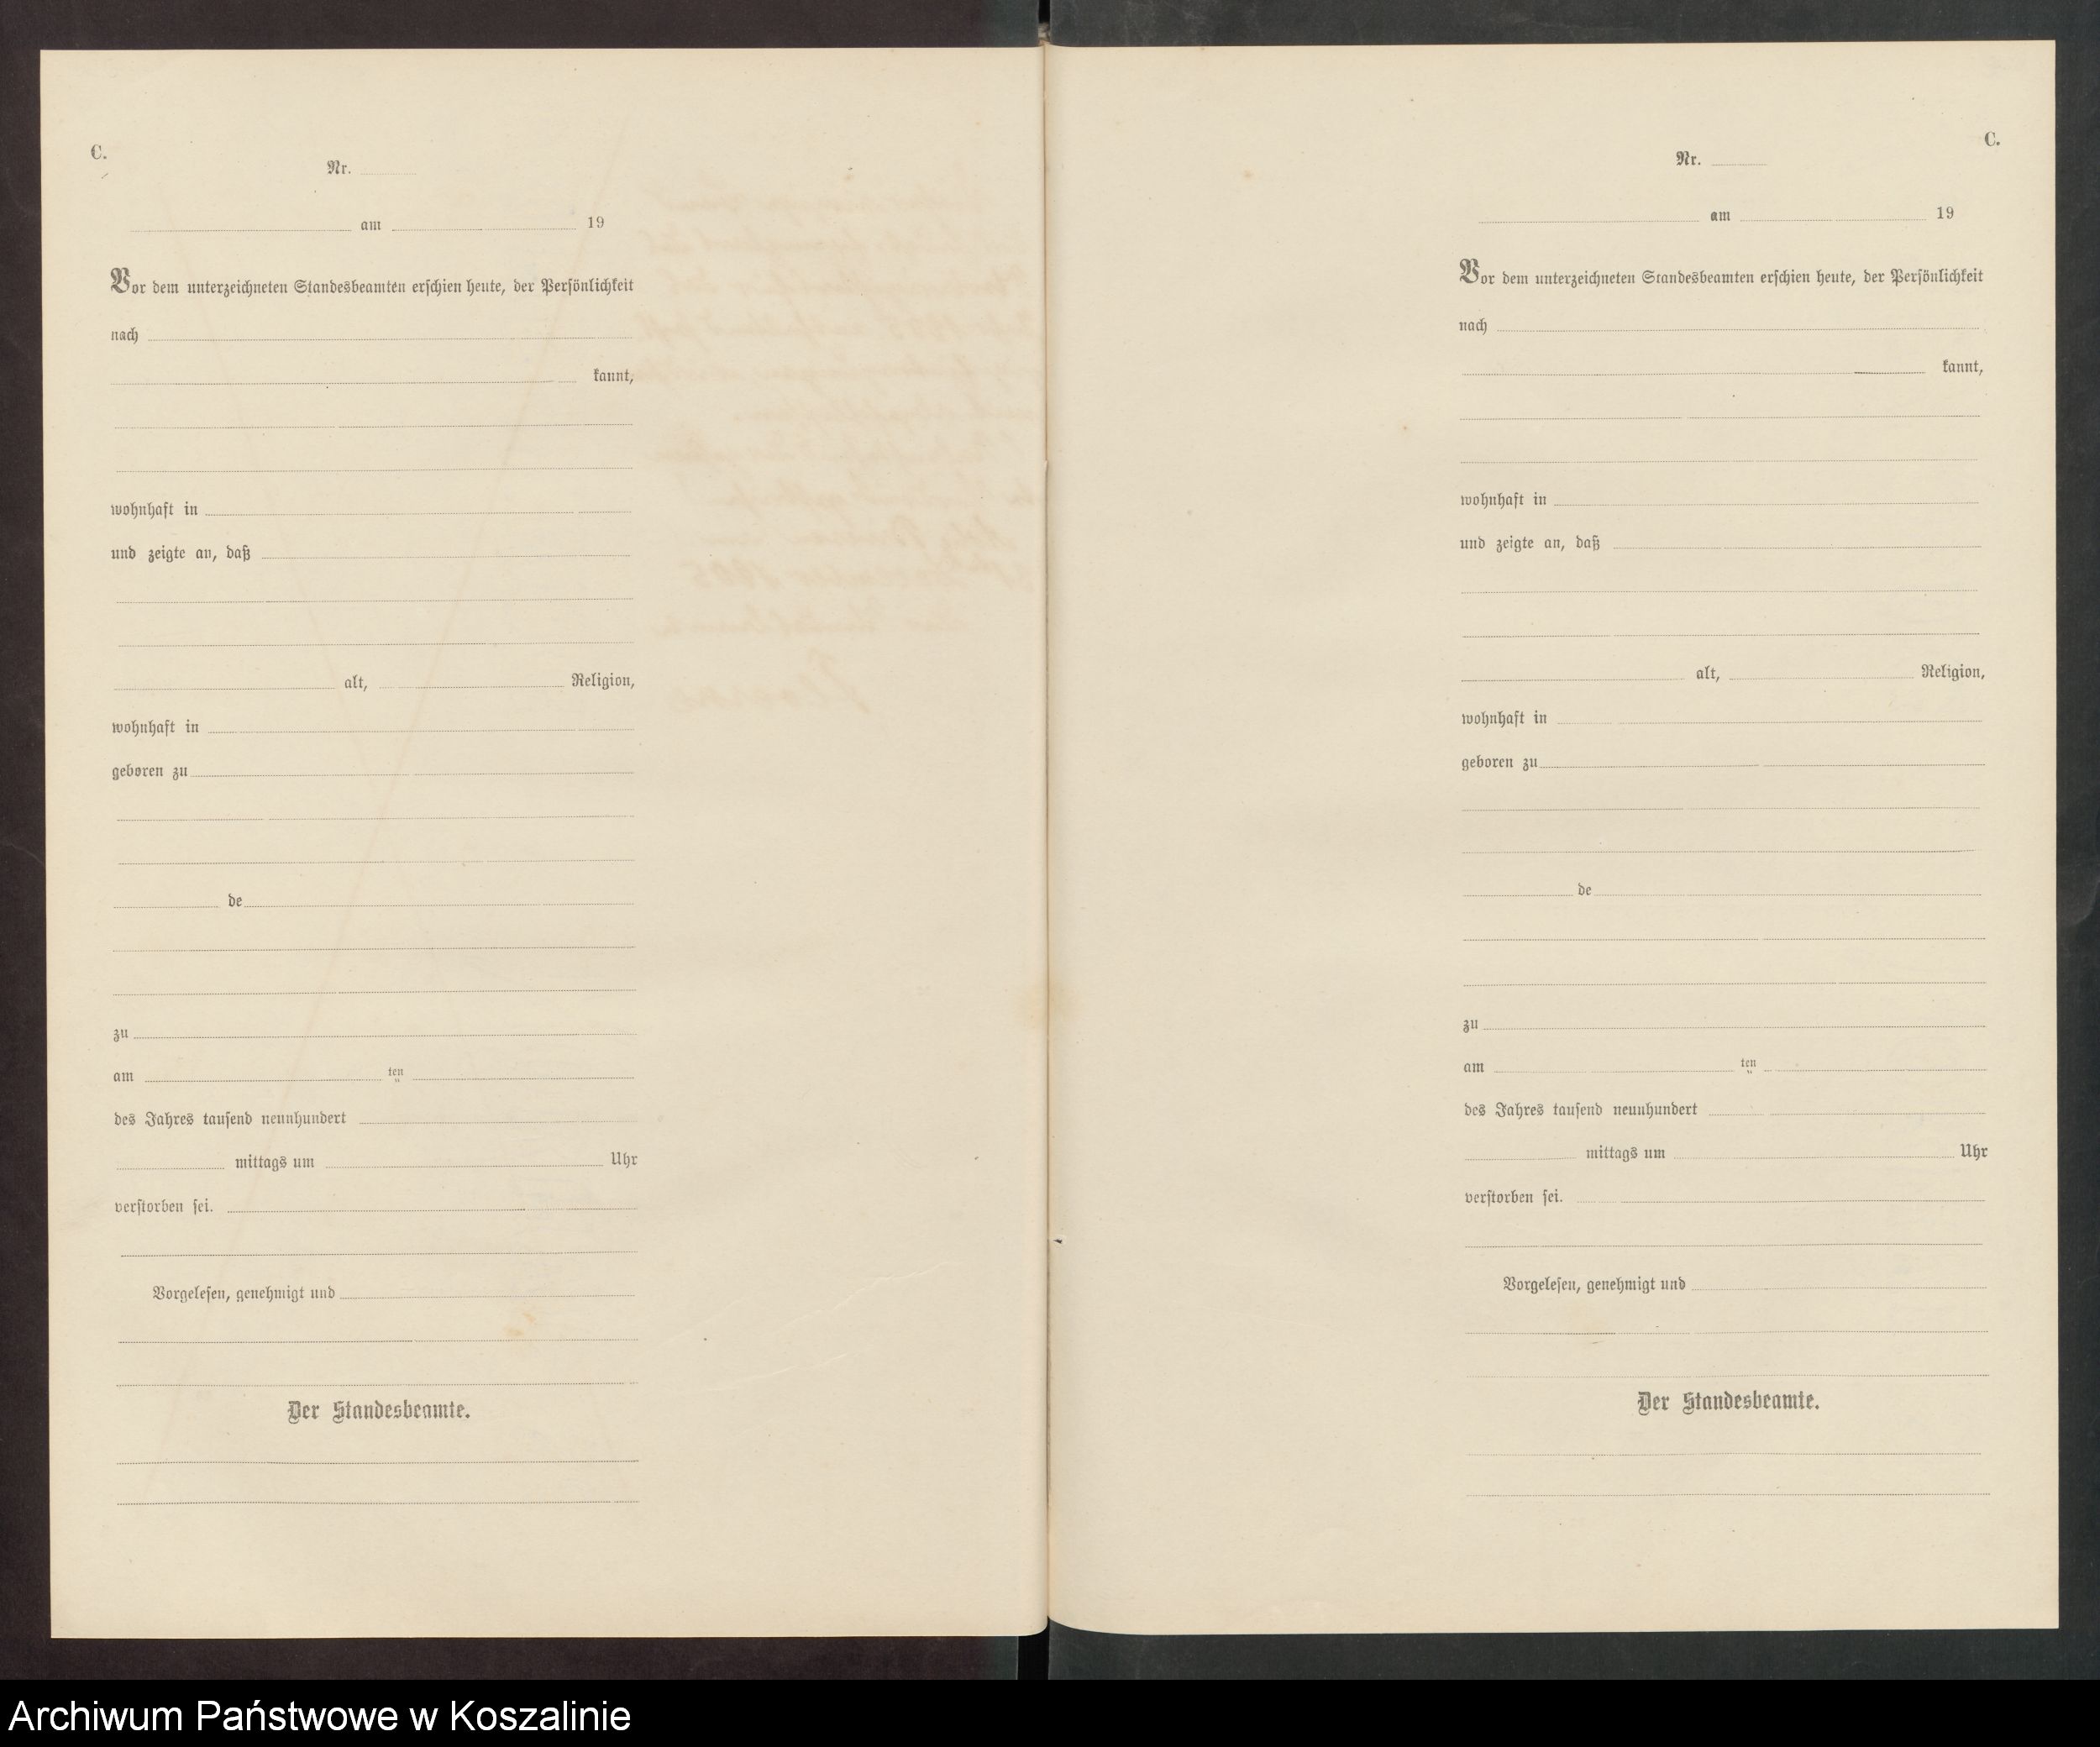 C.
Nr.
am 19
Vor dem unterzeichneten Standesbeamten erschien heute, der Persönlichkeit
nach
kannt,
wohnhaft in
und zeigte an, daß
alt, Religion,
wohnhaft in
geboren zu
de
zu
am ten
des Jahres tausend neunhundert
mittags um Uhr
verstorben sei.
Vorgelesen, genehmigt und
Der Standesbeamte.
C.
Nr.
am 19
Vor dem unterzeichneten Standesbeamten erschien heute, der Persönlichkeit
nach
kannt,
wohnhaft in
und zeigte an, daß
alt, Religion,
wohnhaft in
geboren zu
de
zu
am ten
des Jahres tausend neunhundert
mittags um Uhr
verstorben sei.
Vorgelesen, genehmigt und
Der Standesbeamte.
Archiwum Państwowe w Koszalinie